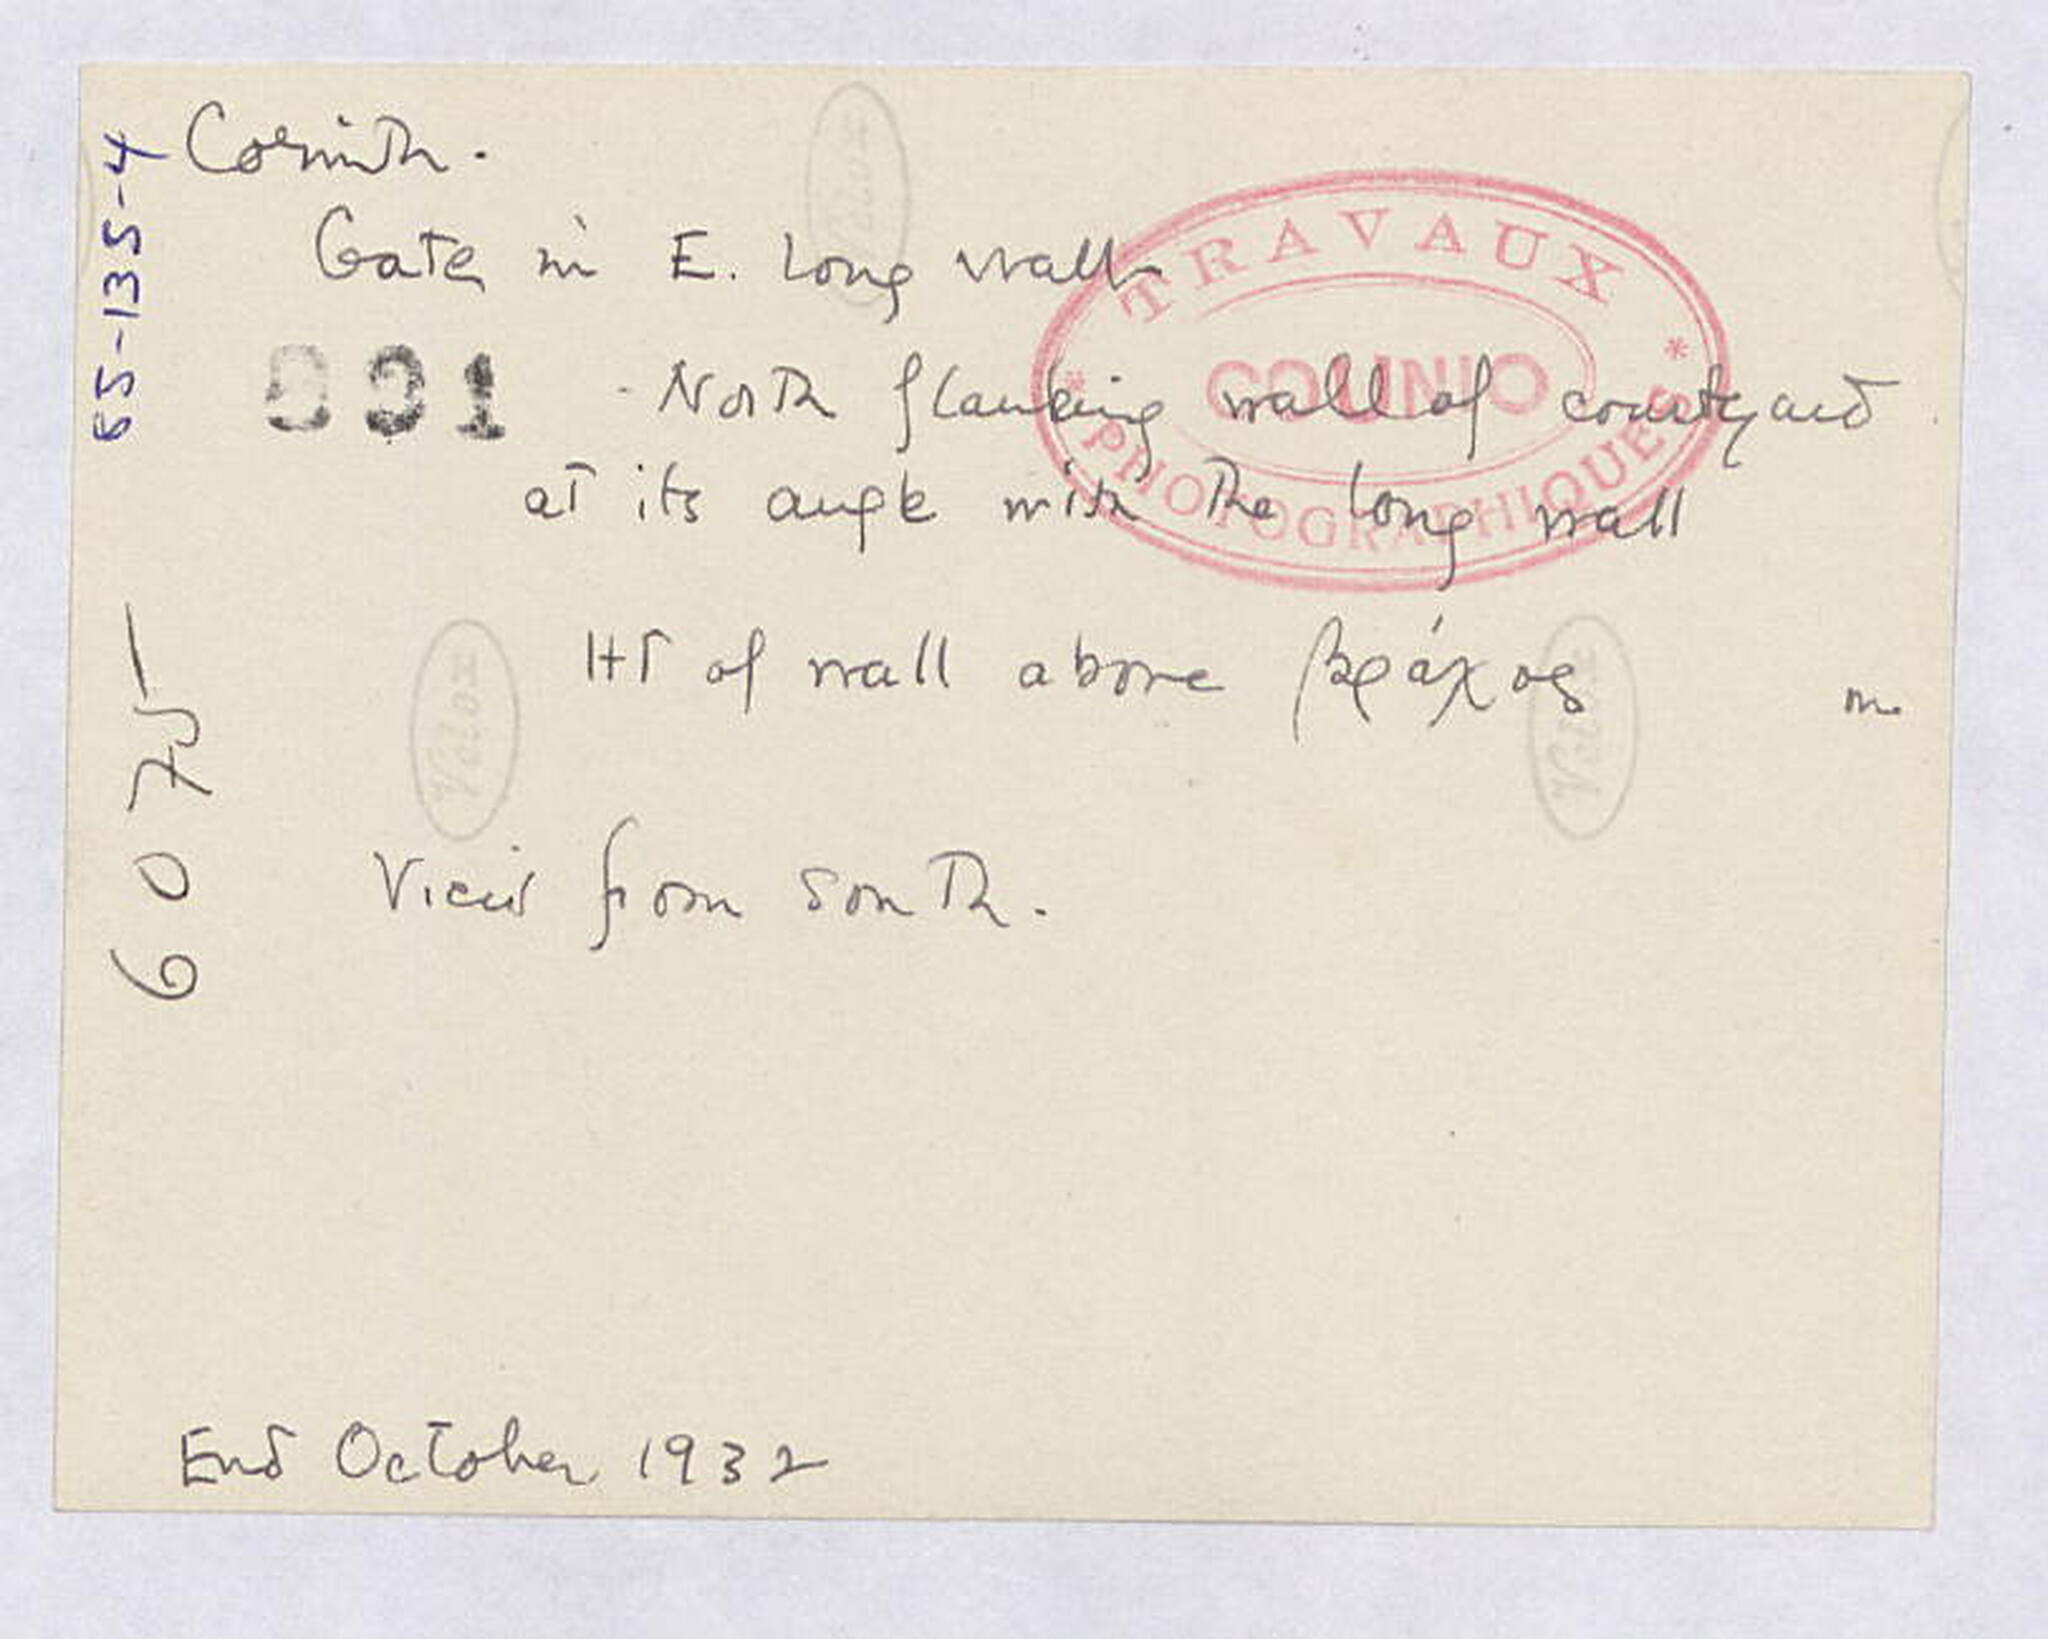 Corinth.
Gate in E. Long wall
001 North flanking wall of courtyard
at its angle with the long wall
HT of wall above βράχος m
View from south.
End October 1932
65-135-4
6075
TRAVAUX
COUNIO
PHOTOGRAPHIQUES
Velox
Velox
Velox